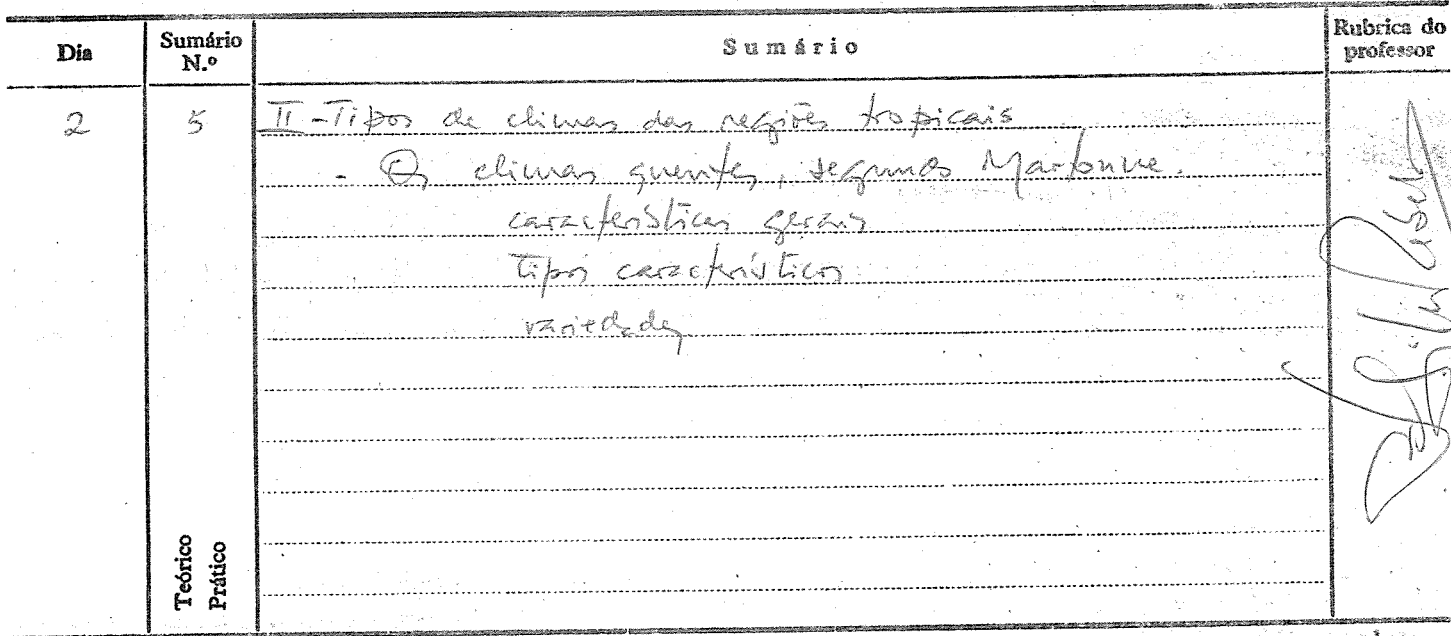 Dia Sumário N.º Sumário Rubrica do professor
2 5 II - Tipos de climas das regiões tropicais
- Os climas quentes, segundo Martonne.
características gerais
Tipos característicos
variedades
Teórico
Prático